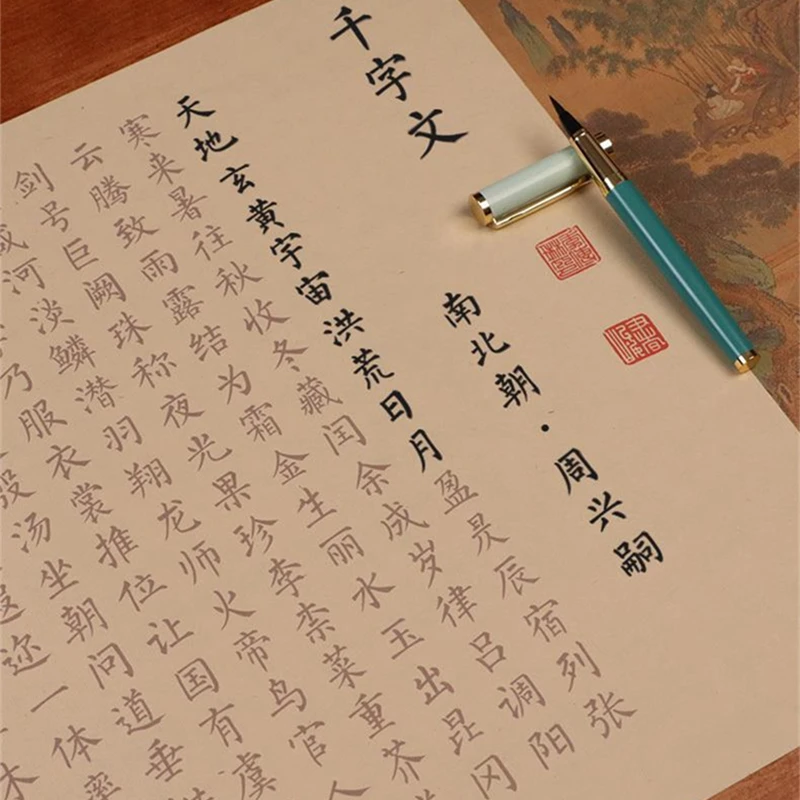 千字文
南北朝·周兴嗣
天地玄黄宇宙洪荒日月盈昃辰宿列张
寒来暑往秋收冬藏闰余成岁律吕调阳
云腾致雨露结为霜金生丽水玉出昆冈
剑号巨阙珠称夜光果珍李柰菜重芥
河淡鳞潜羽翔龙师火帝鸟官人
乃服衣裳推位让国有虞
殷汤坐朝问道垂
迩一体率
木